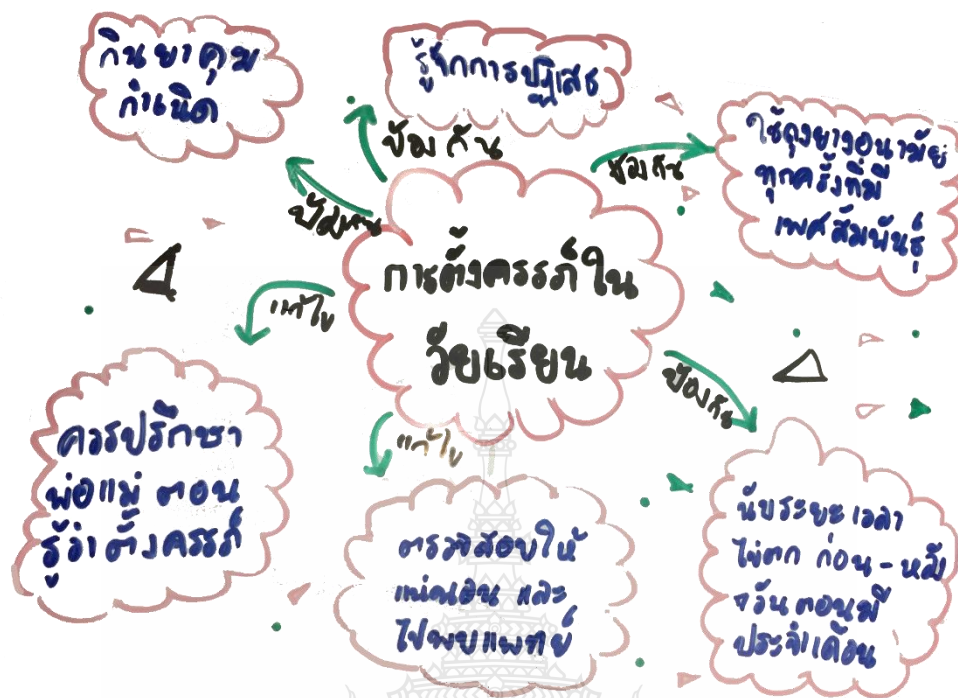 กินยาคุม
กำเนิด
รู้จักการปฏิเสธ
ใช้ถุงยางอนามัย
ทุกครั้งที่มี
เพศสัมพันธุ์
ป้องกัน
ป้องกัน
ป้องกัน
การตั้งครรภ์ใน
วัยเรียน
แก้ไข
ป้องกัน
แก้ไข
ควรปรึกษา
พ่อแม่ ตอน
รู้ว่าตั้งครรภ์
ตรวจสอบให้
แน่นอน และ
ไปพบแพทย์
นับระยะเวลา
ไข่ตก ก่อน - หลัง
7วัน ตอนมี
ประจำเดือน